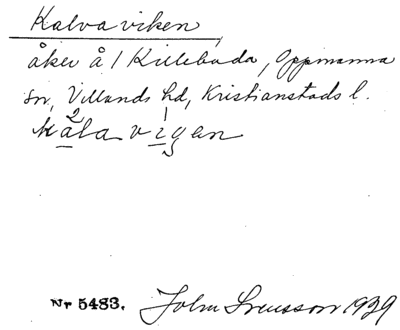 Kalvaviken,
åker å 1 Killebuda, Oppmanna
sn, Villands hd, Kristianstads l.
kalavigen
Nr 5483. John Svensson 1929